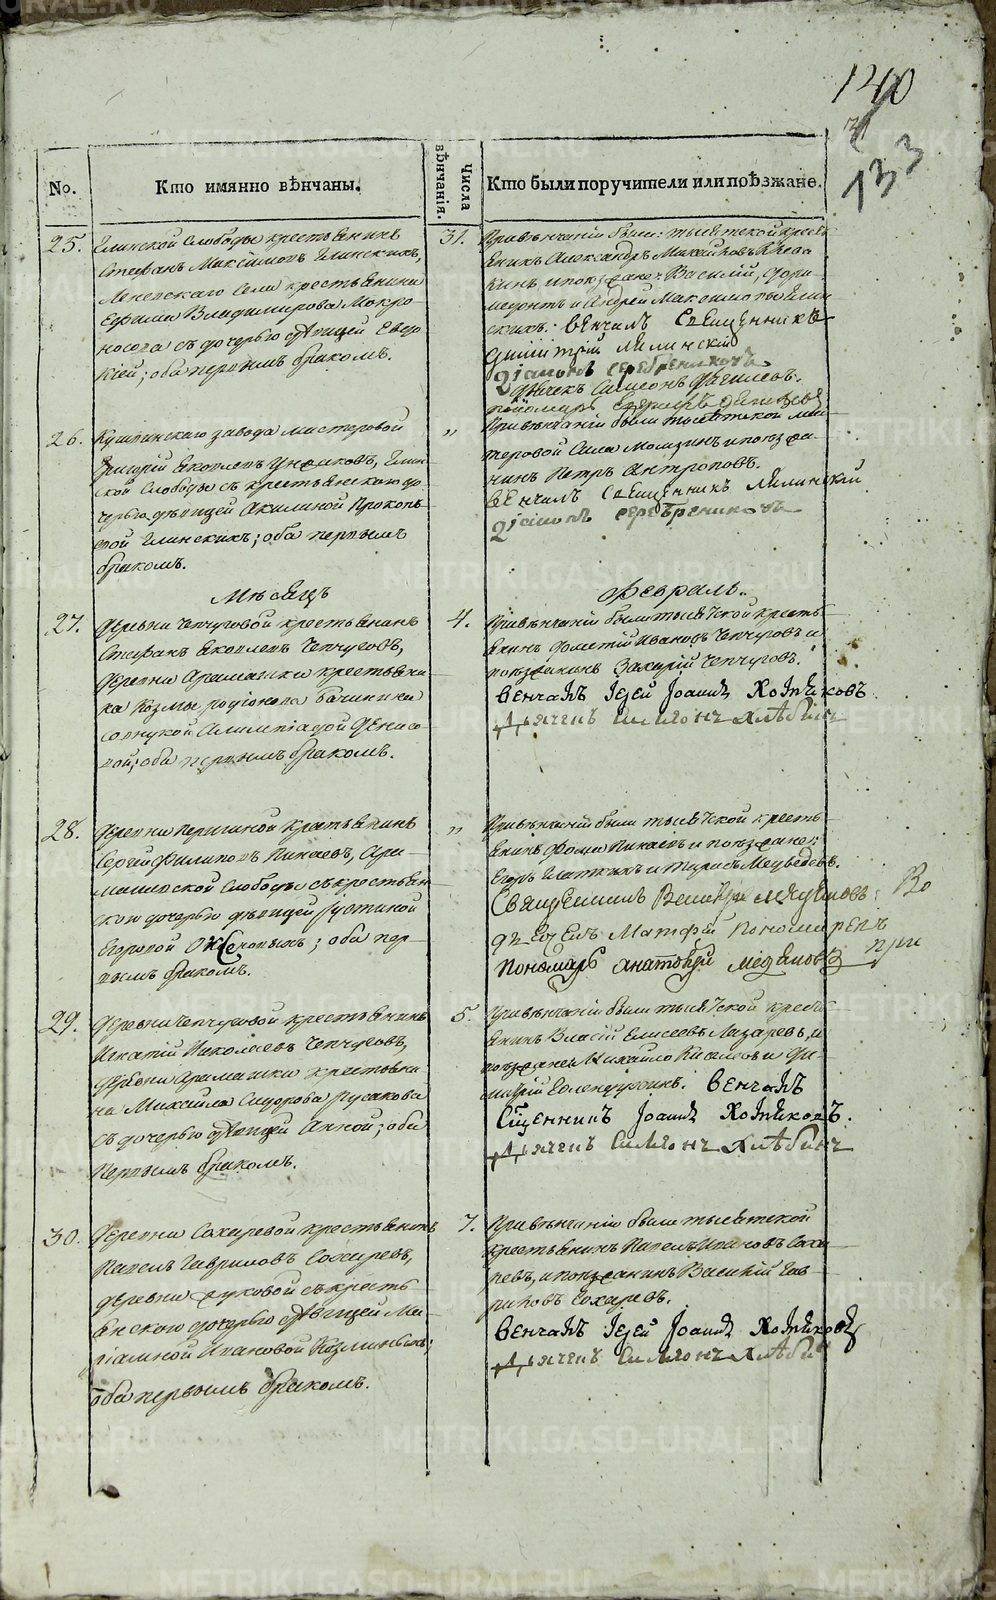 140
133
No.
Кто имянно вѣнчаны.
Числа вѣнчанія.
Кто были поручители или поѣзжане.
25. Глинской Слободы крестьянинъ
Стефанъ Максимовъ Глинскихъ,
Леневскаго Села крестьянина
Ефима Владимирова Мокро-
носога съ дочерью дѣвицей Евдо-
кіей; оба первымъ бракомъ.
31. При вѣнчаніи были: тысяцкой кресть-
янинъ Александръ Михайловъ
и поѣзжане: Василій,
и Андрей Максимовы Глин-
скихъ. Вѣнчалъ Священникъ
Димитрій Лилинскій
Діаконъ Серебрениковъ
Дьячекъ Симеонъ
Пономарь
26. Кушвинскаго завода мастеровой
Григорій Яковлевъ, Глин-
ской Слободы съ крестьянскою до-
черью дѣвицей Акилиной Прокопь-
вой Глинскихъ; оба первымъ
бракомъ.
„ При вѣнчаніи были тысяцкой мас-
теровой Сила и поѣзжа-
нинъ Петръ Антроповъ.
Вѣнчалъ Священникъ Лилинской
Діаконъ Серебрениковъ
Мѣсяцъ Февраль.
27. Деревни Чепчуговой крестьянинъ
Стефанъ Яковлевъ Чепчуговъ,
деревни Арамашки крестьяни-
на Козмы Родіонова
внукой Алимпіадой Денисо-
вой; оба первымъ бракомъ.
4. При вѣнчаніи были тысяцкой кресть-
янинъ Иванов Чепчуговъ и
поѣзжанинъ Захарій Чепчуговъ.
Вѣнчалъ Іерей Іоаннъ Хотѣновъ
Дьячекъ Симеонъ Хлѣбинъ
28. Деревни крестьянинъ
Сергій Филиповъ Пинаевъ, Ара-
машевской Слободы съ крестьян-
скою дочерью дѣвицей Устиной
Егоровой; оба пер-
вымъ бракомъ.
„ При вѣнчаніи были тысяцкой кресть-
янинъ Фома Пинаевъ и поѣзжане:
Егоръ и Медведевъ.
Священникъ
Дьячекъ Матфій Пономаревъ
Пономарь Анатолій
Во
при
29. Деревни Чепчуговой крестьянинъ
Игнатій Николаевъ Чепчуговъ,
деревни Арамашки крестьяни-
на Михаила Сидорова Русакова
съ дочерью дѣвицей Анной; оба
первымъ бракомъ.
5. При вѣнчаніи были тысяцкой кресть-
янинъ Власій Елисеевъ Лазаревъ, и
поѣзжане: Михайло Киселевъ и Ди-
митрій. Вѣнчалъ
Сщенникъ Іоаннъ Хотѣновъ.
Дьячекъ Симеонъ Хлѣбинъ
30. Деревни Сохаревой крестьянинъ
Павелъ Гавриловъ Сохаревъ,
деревни Луковой съ кресть-
янскою дочерью дѣвицей Ма-
ріамной Ивановой Козминыхъ;
оба первымъ бракомъ.
7. При вѣнчаніи были тысяцкой
крестьянинъ Павелъ Ивановъ Соха-
ревъ, и поѣзжанинъ Василій Гав-
риловъ Сохаревъ.
Вѣнчалъ Іерей Іоаннъ Хотѣновъ
Дьячекъ Симеонъ Хлѣбинъ
METRIKI.GASO-URAL.RU